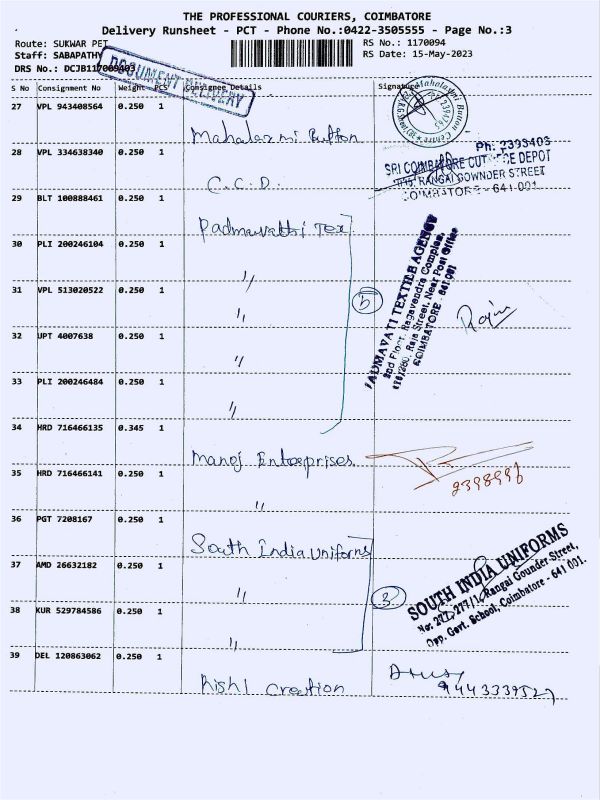 THE PROFESSIONAL COURIERS, COIMBATORE
Delivery Runsheet - PCT - Phone No.:0422-3505555 - Page No.:3
Route: SUKWAR PET RS No.: 1170094
Staff: SABAPATHY RS Date: 15-May-2023
DRS No.: DCJB117009403
DOCUMENT DELIVERY
S No Consignment No Weight PCS Consignee Details Signature
27 VPL 943408564 0.250 1
Mahalaxmi Button
Mahalaxmi Button Centre
28 VPL 334638340 0.250 1
C.C.D.
Ph: 2393403
SRI COIMBATORE CUT DEPOT
RANGAI GOWNDER STREET
COIMBATORE - 641 001
29 BLT 100888461 0.250 1
Padmavathi Tex
30 PLI 200246104 0.250 1
"
31 VPL 513020522 0.250 1
"
32 UPT 4007638 0.250 1
"
33 PLI 200246484 0.250 1
"
5
PADMAVATI TEXTILE AGENCY
2nd Floor, Ragavendra Complex,
Raja Street, Near Post Office
COIMBATORE - 641 001
34 HRD 716466135 0.345 1
Manoj Enterprises
2398996
35 HRD 716466141 0.250 1
"
36 PGT 7208167 0.250 1
South India Uniforms
37 AMD 26632182 0.250 1
"
38 KUR 529784586 0.250 1
"
3
SOUTH INDIA UNIFORMS
No: 277/1, Rangai Gounder Street,
Opp. Govt. School, Coimbatore - 641 001.
39 DEL 120863062 0.250 1
Rishi Creation
9443339527